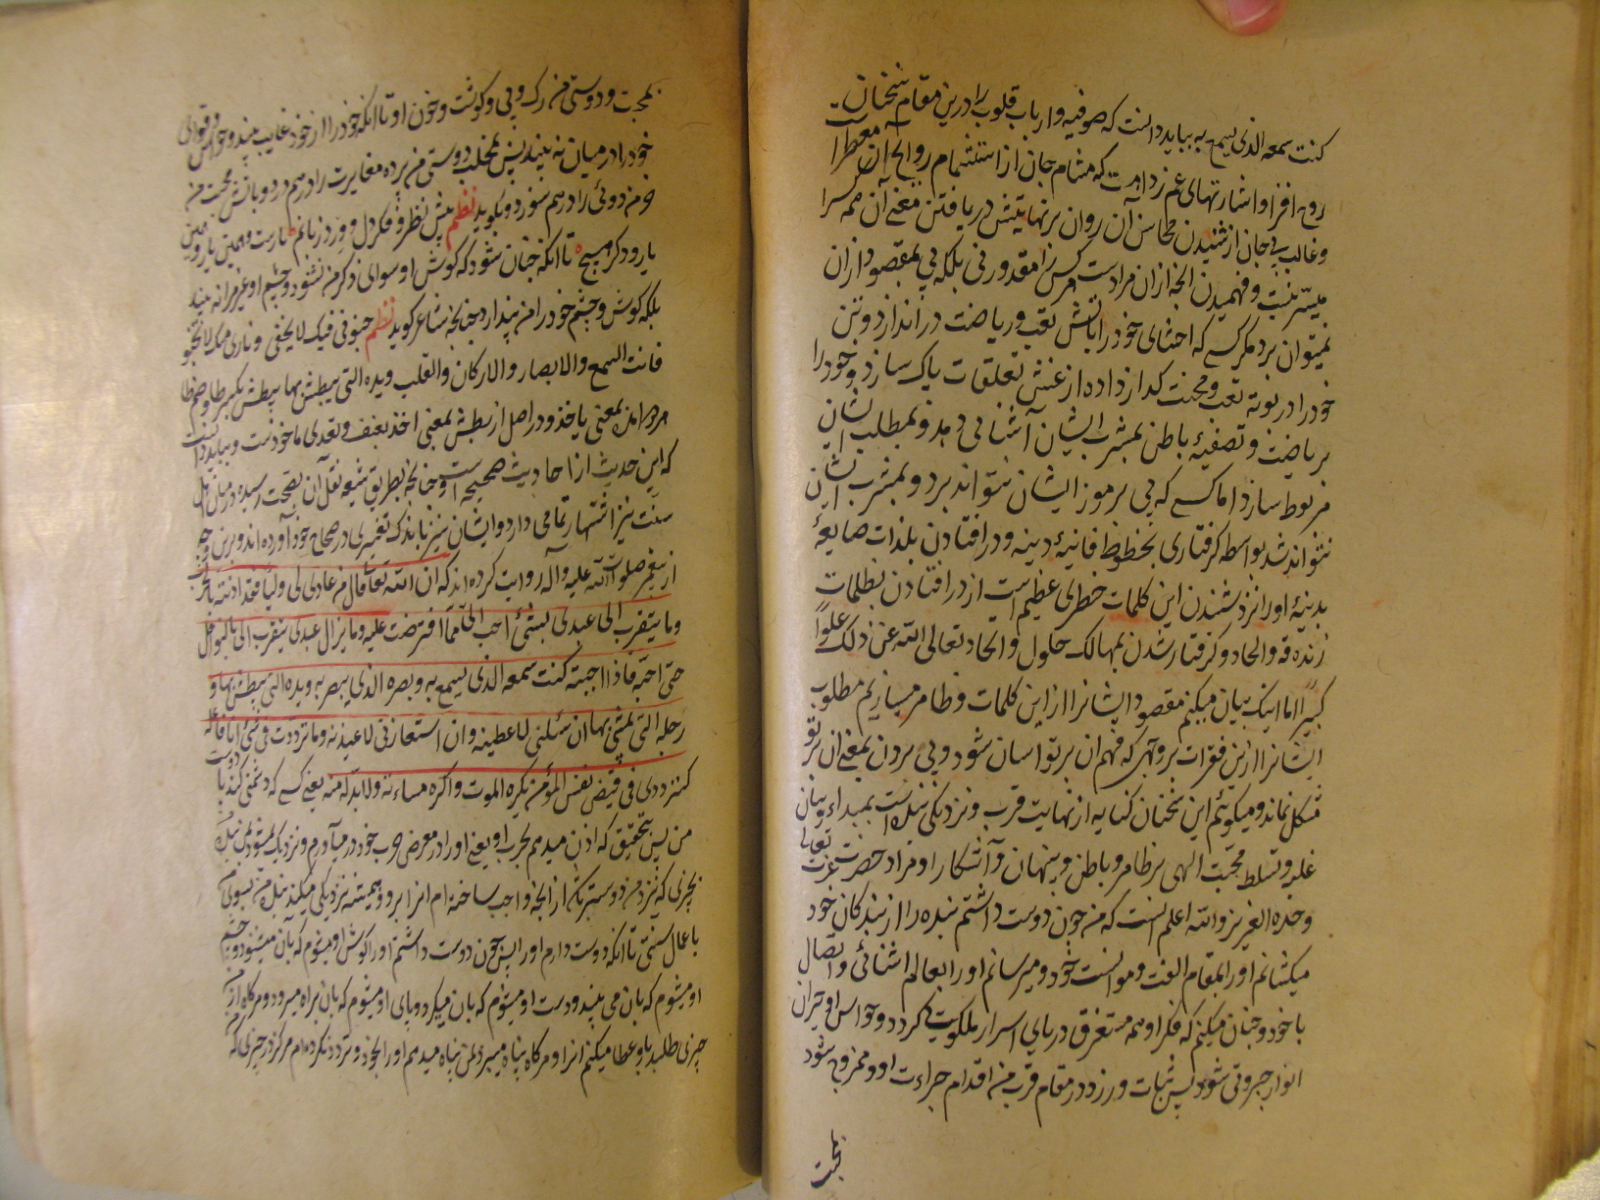 کنت سمعه الذی یسمع به بباید دانست که صوفیه و ارباب قلوب را درین مقام سخنان
روح افزا و اشارتهای غم زداست که مشام جان از استشمام روایح آن معطر
و غالب بی جان از شنیدن محاسن آن روان بر نهایتش دریافتن معنی آن همه کس را
میسر نیست و فهمیدن آنچه ازان مرادست هر کس را مقدور نی بلکه پی بمقصود ازان
نمیتوان برد مگر کسے که احشای خود را باتش تعب و ریاضت در اندازد و تن
خود را در بوته تعب و محنت گداز داده از غش تعلقات پاک سازد و خود را
بریاضت و تصفیهٔ باطن بمشرب ایشان آشنائی دهد و بمطلب ایشان
مربوط سازد اما کسے که پی برموز ایشان نتواند برد و بمشرب ایشان
نتواند شد بواسطه گرفتاری بحظوظ فانیهٔ دینه و در افتادن بلذات ضایعهٔ
بدینهٔ او را نزد شنیدن این کلمات خطری عظیم است از در افتادن بظلمات
زندقه و الحاد و گرفتار شدن بمهالک حلول و اتحاد تعالی الله عن ذلک علوًّا
کبیرًا اما اینک بیان میکنم مقصود ایشانرا از این کلمات و ظاهر میسازیم مطلوب
ایشانرا ازین فقرات بروجهی که فهم ان بر تو اسان شود و پی بردن بمعنی ان بر تو
مشکل نماند و میگوئیم این سخنان کنایه از نهایت قرب و نزدیکی بنده است بمبداء و بیان
غلبه و تسلط محبت الهی بر ظاهر و باطن و پنهان و آشکار او مراد حضرت عزت تعالی
وحده العزیز والله اعلم اینست که من چون دوست داشتم بنده را از بندگان خود
میکشانم او را بمقام الفت و موانست خود و میرسانم او را بعالم اشنائی و اتصال
با خود و چنان میکنم که فکر او همه مستغرق دریای اسرار ملکوت گردد و حواس او حیران
انوار جبروتی شود پس ثبات ورزد در مقام قرب من اقدام جراءت او و ممزوج شود
بمحبت
بمحبت و دوستی من رگ و پی و گوشت و خون او تا انکه خود را از خود غایب بیند و حواس و قوای
خود را در میان نه بیند پس بمحل دوستی من پرده مغایرت را در هم درد و باتش محبت من
خرمن دوئی را در هم سوزد و بگوید نظم پیش نظر و فکر دل و ورد زبانم یارست و همین یار و همین
یار و دگر هیچ تا انکه چنان شود که گوش او سوای ذکر من نشنود و چشم او غیر مرا نه بیند
بلکه گوش و چشم خود را من پندارد چنانچه شاعر گوید نظم جنونی فیک لا یخفی و ناری منک لا تخبو
فانت السمع والابصار والارکان والقلب ویده التی یبطش بها یبطش بکسر طا و ضم طا
هر دو امده بمعنی یاخذ و در اصل از بطش بمعنی اخذ بعنف و تعدی ماخوذست و بباید دانست
که این حدیث از احادیث صحیحه است و چنانچه بطریق شیعه نقل آن بصحت رسیده در میان اهل
سنت نیز اشتهار تمامی دارد و ایشان نیز باندک تغییری در صحاح خود آورده اند و برین وجه
از پیغمبر صلوات الله علیه وآله روایت کرده اند که ان الله تعالی قال من عادی لی ولیا فقد اذنته بالحرب
وما یتقرب الی عبدی بشئ احب الی مما افترضت علیه وما یزال عبدی یتقرب الی بالنوافل
حتی احبه فاذا احببته کنت سمعه الذی یسمع به وبصره الذی یبصر به ویده التی یبطش بها و
رجله التی یمشی بها ان سئلنی لاعطینه وان استعاذنی لاعیذنه وما ترددت فی شئ انا فاعله
کترددی فی قبض نفس المؤمن یکره الموت واکره مساءته ولا بد له منه یعنے کسے که دشمنی کند با دوست
من پس بتحقیق که اذن میدهم بحرب او یعنے او را در معرض حرب خود در میآورم و نزدیک نمیشود بمن بنده
بچیزی که نزد من دوستر باشد از انچه واجب ساخته ام انرا برو و همیشه نزدیکی میکند بنده من بسوی من
با عمال سنتی تا انکه دوست دارم او را پس چون دوست داشتم او را گوش او میشوم که بان میشنود و چشم
او میشوم که بان می بیند و دست او میشوم که بان میگیرد و پای او میشوم که بان براه میرود و هرگاه از من
چیزی طلبد باو عطا میکنم انرا و هرگاه پناه میبرد بمن پناه میدهم او را بخود و تردد نکرده ام هرگز در چیزی که